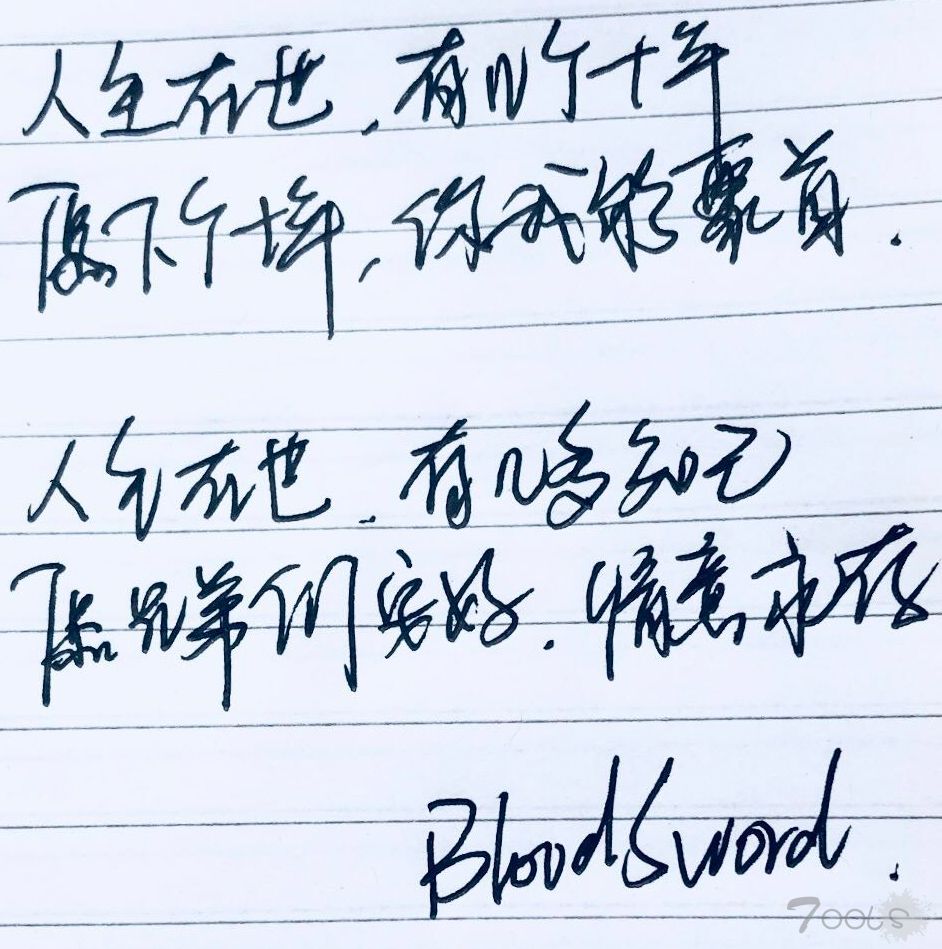 人生在世，有几个十年
愿下个十年，你我能聚首.
人生在世，有几多知己
愿兄弟们安好，情意永存
BloodSword.
7ools